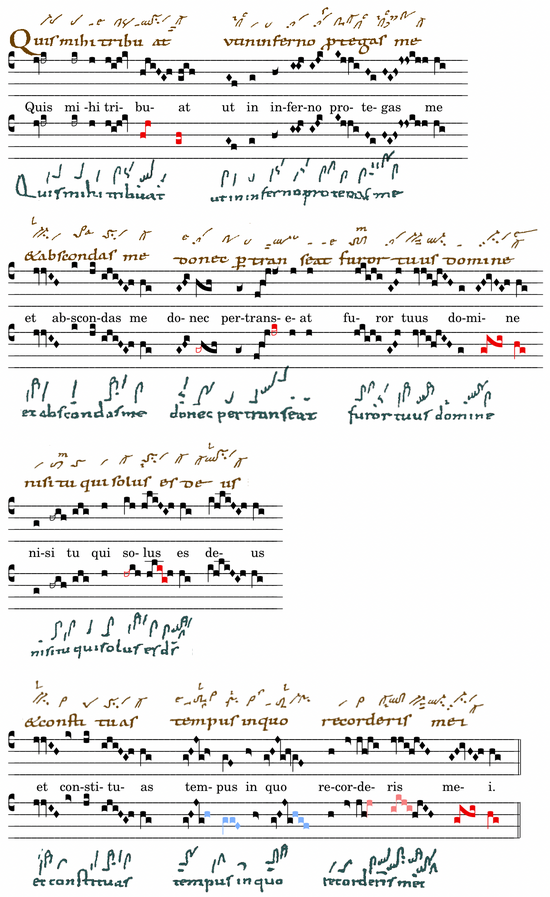 Quis mihi tribu at ut in inferno ꝓ tegas me
Quis mi -hi tri- bu- at ut in in-fer-no pro- te- gas me
Quis mihi tribuat ut in inferno protegas me
& abscondas me donec ꝑ tran seat furor tuus domine
et ab-scon-das me do- nec per-trans- e- at fu- ror tuus do-mi- ne
et abscondas me donec pertranseat furor tuus domine
nisi tu qui solus es de us
ni-si tu qui so- lus es de- us
nisi tu qui solus es ds
& consti tu as tempus in quo recorderis mei
et con-sti- tu- as tem- pus in quo re-cor-de- ris me- i.
et constituas tempus in quo recorderis mei